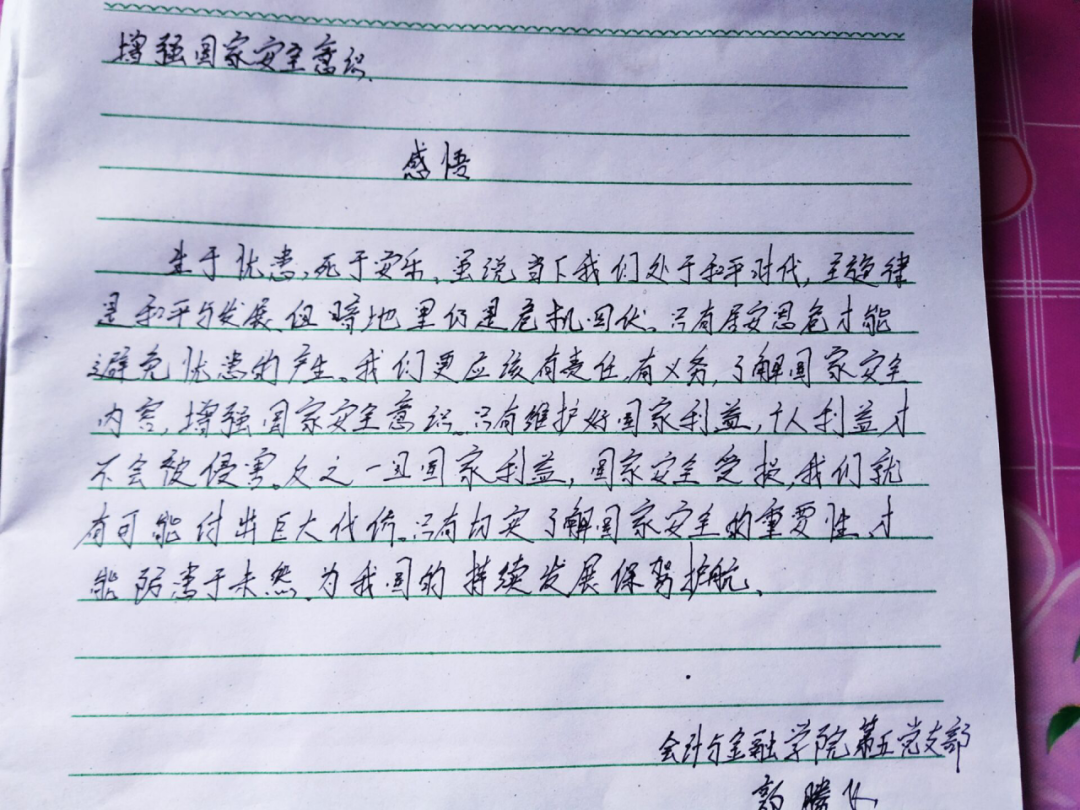 增强国家安全意识.
感悟
生于忧患,死于安乐。虽说当下我们处于和平时代,主旋律
是和平与发展,但暗地里仍是危机四伏。只有居安思危才能
避免忧患的产生。我们更应该有责任,有义务,了解国家安全
内容,增强国家安全意识。只有维护好国家利益,个人利益才
不会被侵害。反之一旦国家利益,国家安全受损,我们就
有可能付出巨大代价。只有切实了解国家安全的重要性,才
能防患于未然。为我国的持续发展保驾护航。
会计与金融学院第五党支部
郭腾飞